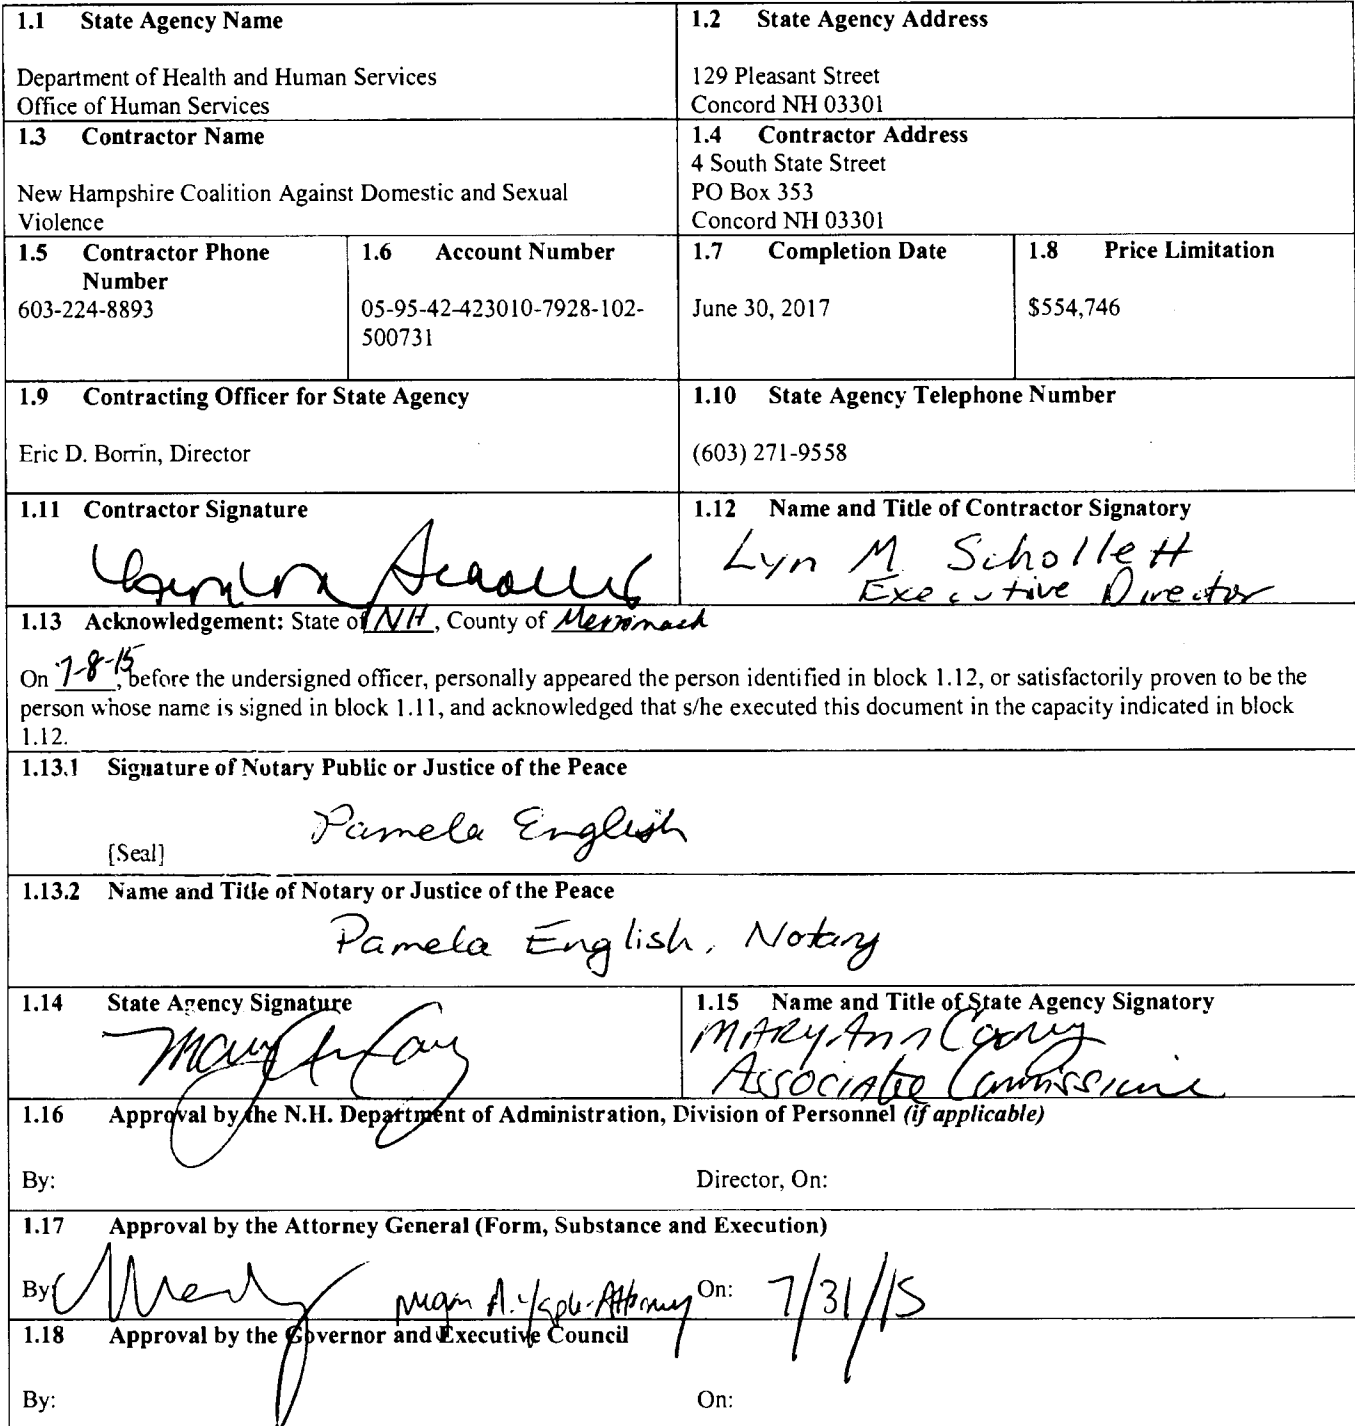 1.1 State Agency Name
Department of Health and Human Services
Office of Human Services
1.2 State Agency Address
129 Pleasant Street
Concord NH 03301
1.3 Contractor Name
New Hampshire Coalition Against Domestic and Sexual
Violence
1.4 Contractor Address
4 South State Street
PO Box 353
Concord NH 03301
1.5 Contractor Phone
Number
603-224-8893
1.6 Account Number
05-95-42-423010-7928-102-
500731
1.7 Completion Date
June 30, 2017
1.8 Price Limitation
$554,746
1.9 Contracting Officer for State Agency
Eric D. Borrin, Director
1.10 State Agency Telephone Number
(603) 271-9558
1.11 Contractor Signature
1.12 Name and Title of Contractor Signatory
Lyn M. Schollett
Executive Director
1.13 Acknowledgement: State of NH, County of Merrimack
On 7-8-15, before the undersigned officer, personally appeared the person identified in block 1.12, or satisfactorily proven to be the
person whose name is signed in block 1.11, and acknowledged that s/he executed this document in the capacity indicated in block
1.12.
1.13.1 Signature of Notary Public or Justice of the Peace
Pamela English
[Seal]
1.13.2 Name and Title of Notary or Justice of the Peace
Pamela English, Notary
1.14 State Agency Signature
1.15 Name and Title of State Agency Signatory
Mary Ann Cooney
Associate Commissioner
1.16 Approval by the N.H. Department of Administration, Division of Personnel (if applicable)
By: Director, On:
1.17 Approval by the Attorney General (Form, Substance and Execution)
By: Attorney On: 7/31/15
1.18 Approval by the Governor and Executive Council
By: On: